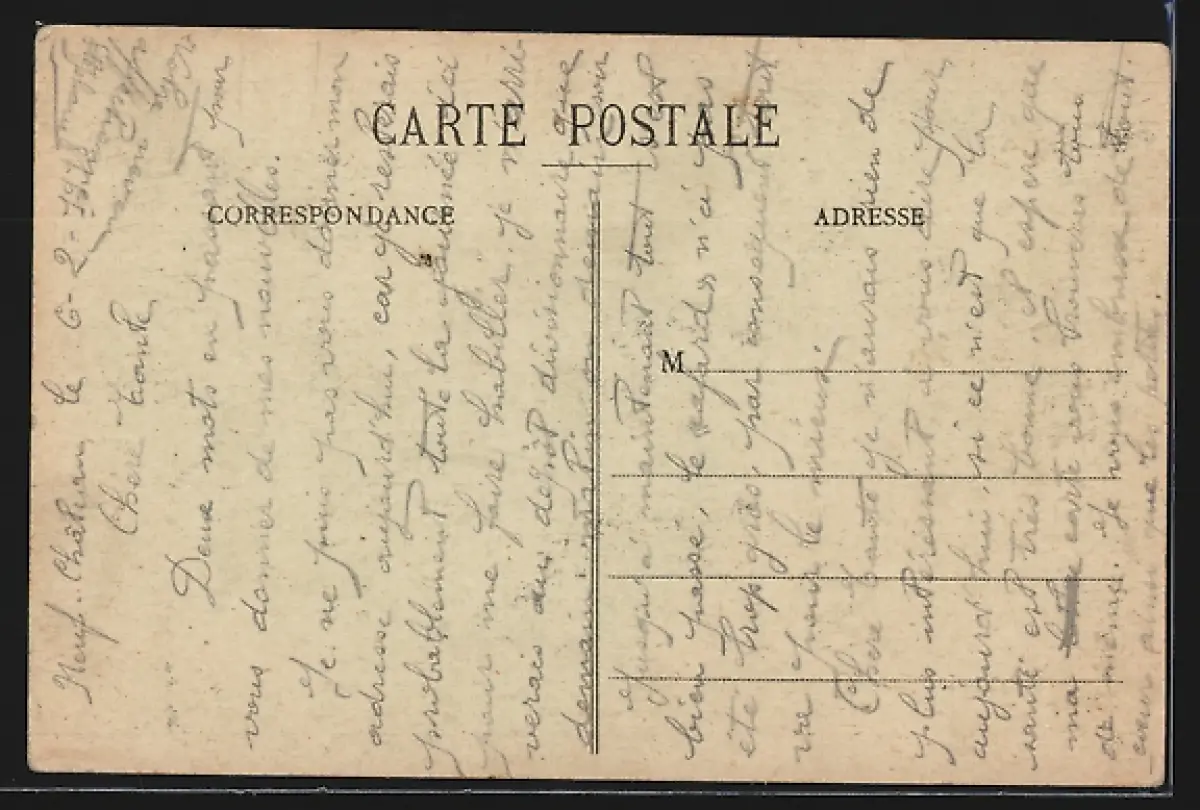 CARTE POSTALE
CORRESPONDANCE
ADRESSE
M
Neuf-Château le 6-2-
Chère tante
Deux mots en passant pour
vous donner de mes nouvelles.
Je ne puis pas vous donner mon
adresse aujourd'hui, car je resterais
probablement toute la journée ici
pour me faire habiller, je n'arri-
verais au dépôt divisionnaire que
demain matin ou demain soir
Jusqu'à maintenant tout s'est
bien passé, le n'a pas
été trop gros, par conséquent tout
va pour le mieux.
Chère tante je n'aurais rien de
plus intéressant à vous dire pour
aujourd'hui, si ce n'est que la
santé est très bonne, et espère que
ma carte vous trouvera tous
de même. Je vous embrasse de tout
cœur ainsi que les petits.